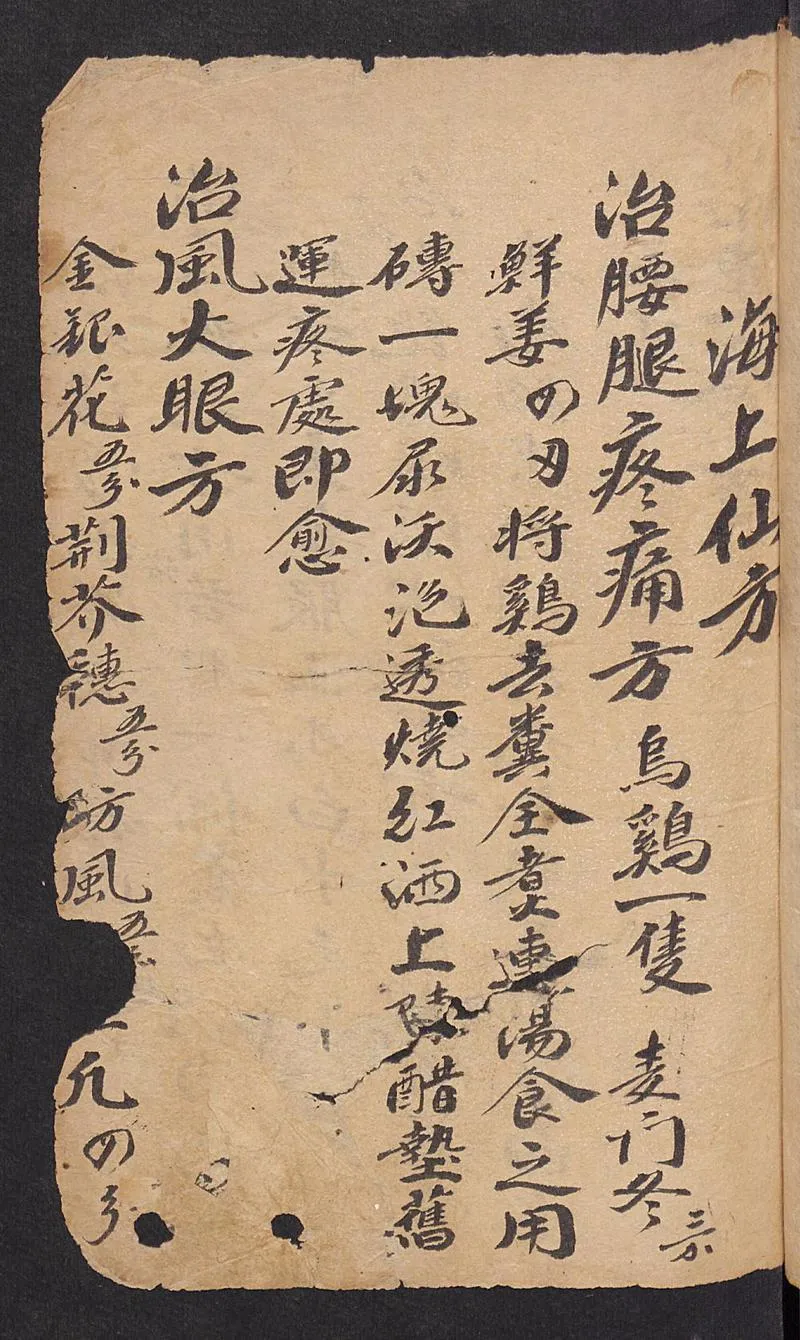 海上仙方
治腰腿疼痛方 烏鷄一隻 麦门冬三分
鮮姜四刃将鷄去糞全煑連湯食之用
磚一塊尿沃泡透燒红洒上陳醋墊舊
運疼處即愈
治風火眼方
金銀花五分荆芥穗五分防風五